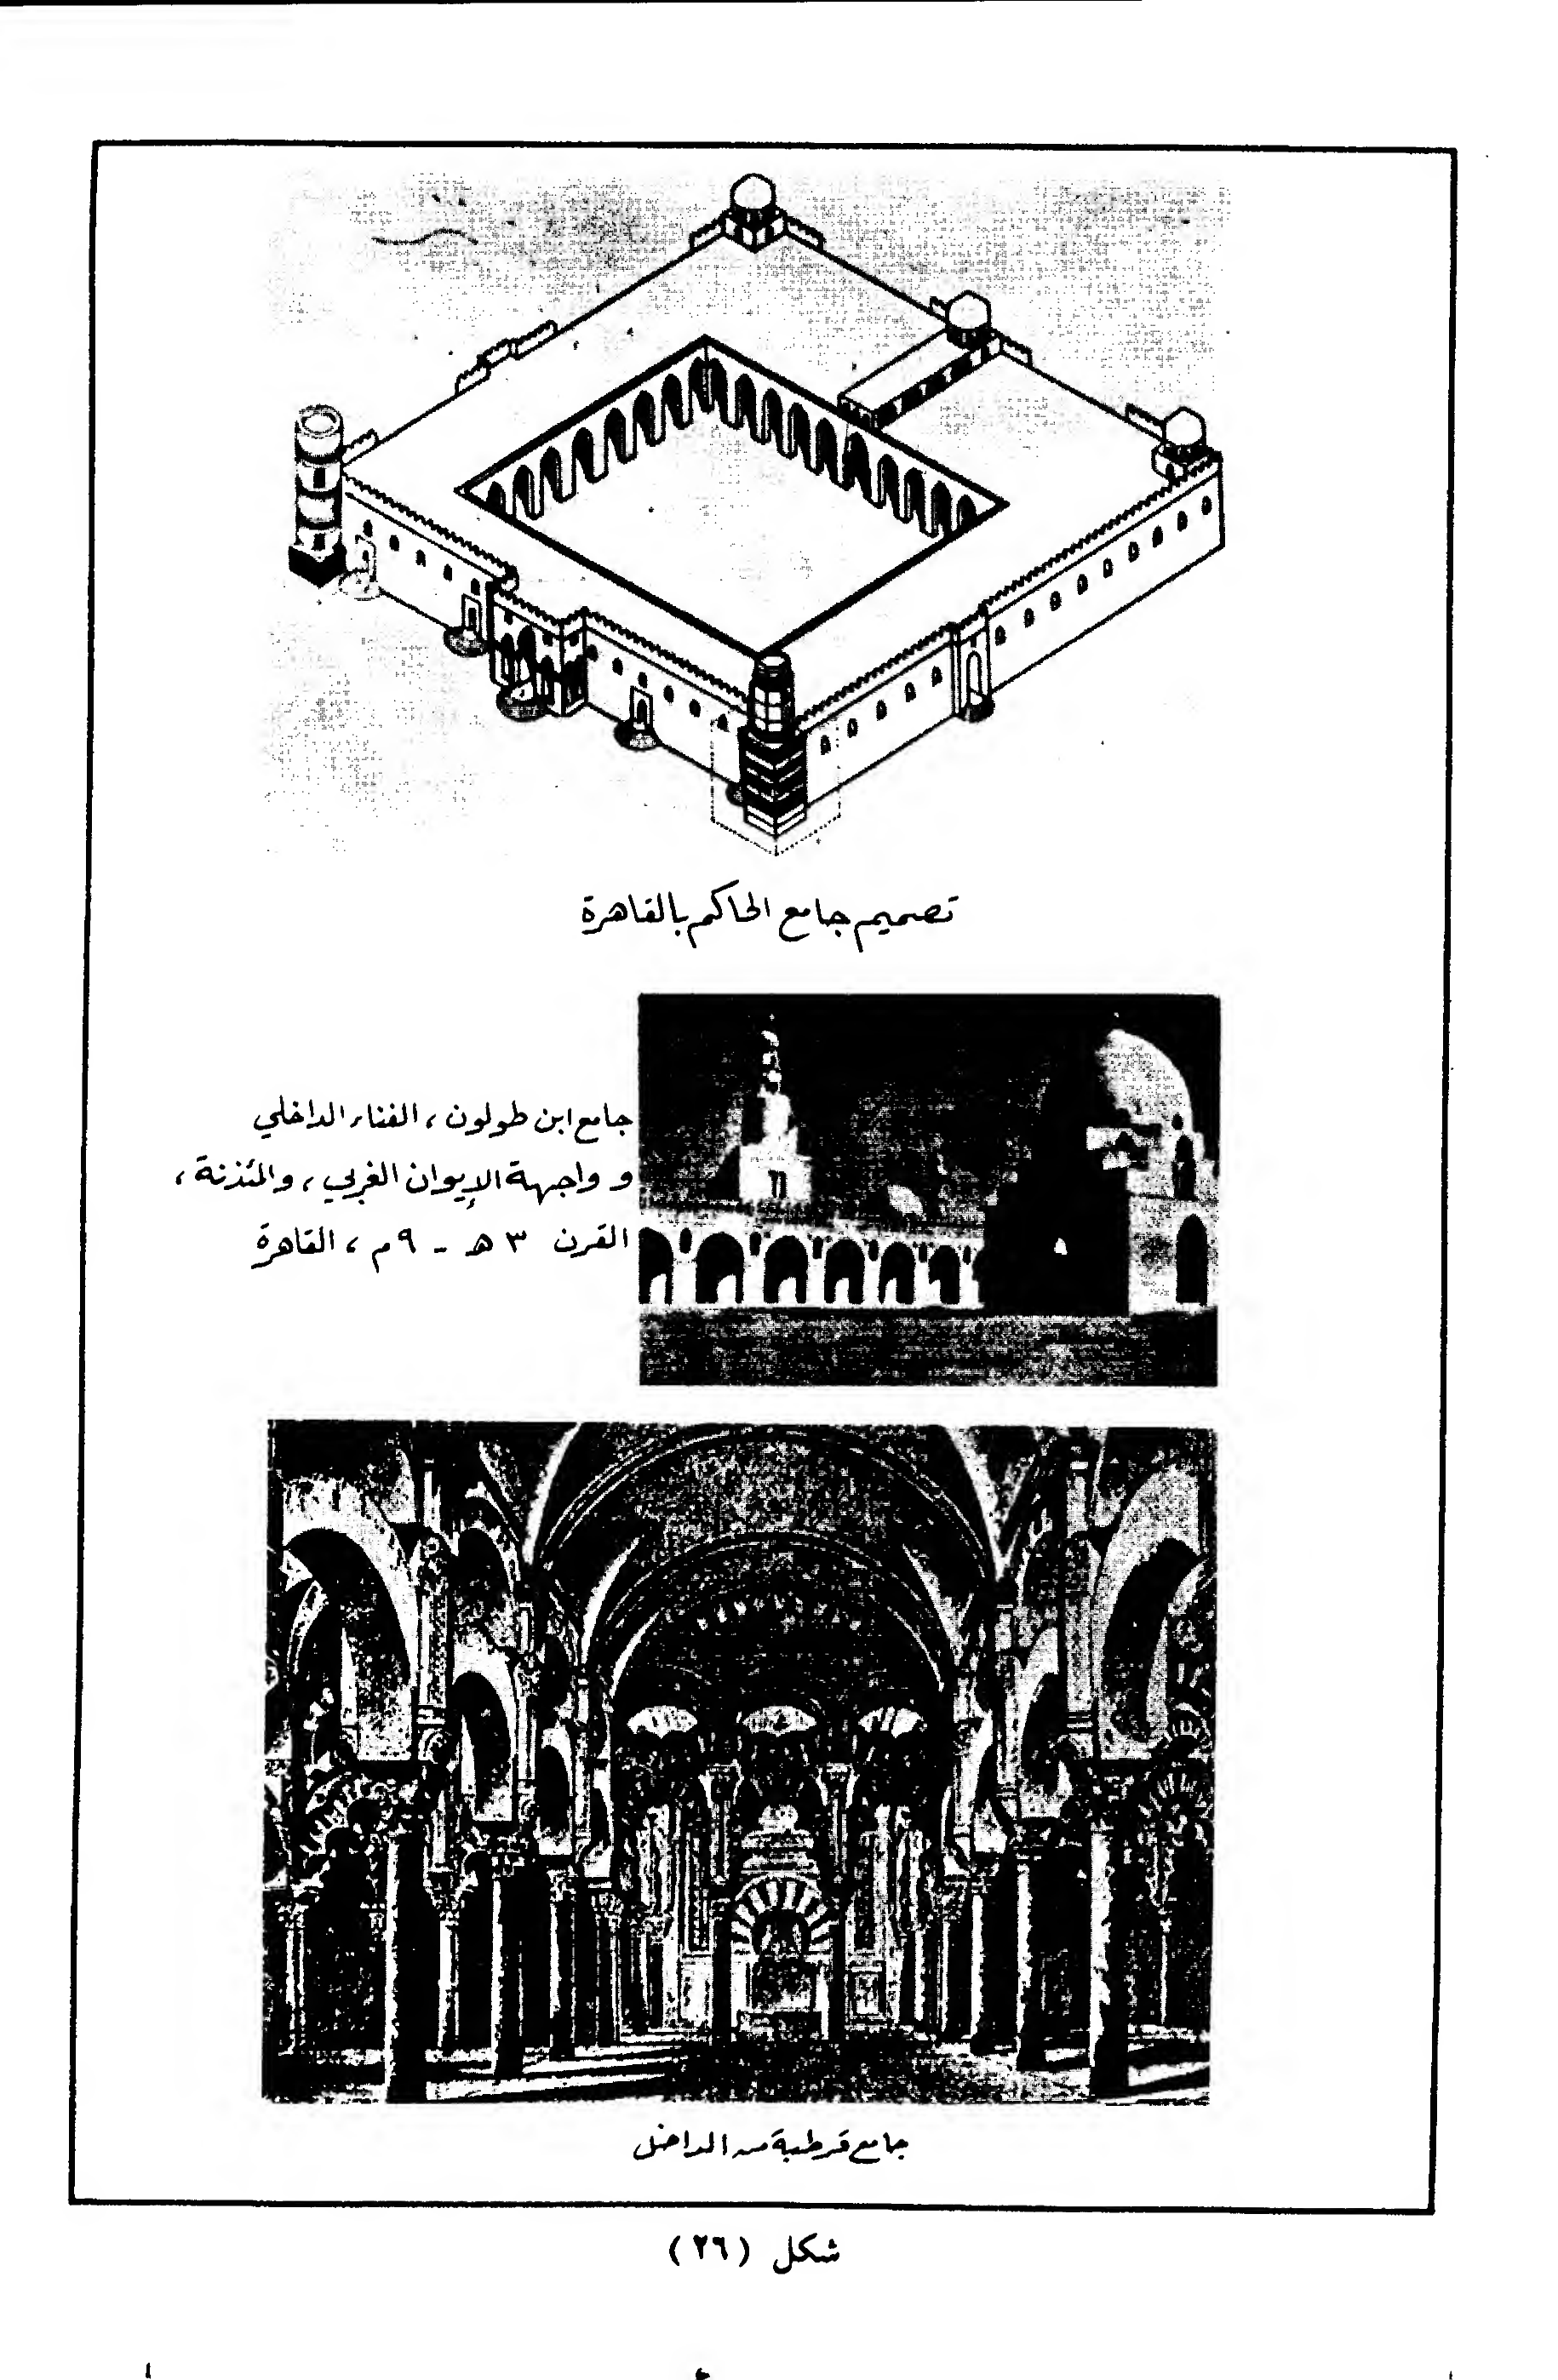 تصميم جامع الحاكم بالقاهرة
جامع ابن طولون ، الفناء الداخلي
و واجهة الإيوان الغربي ، والمئذنة ،
القرن ٣ هـ - ٩ م ، القاهرة
جامع قرطبة من الداخل
شكل (٢٦)